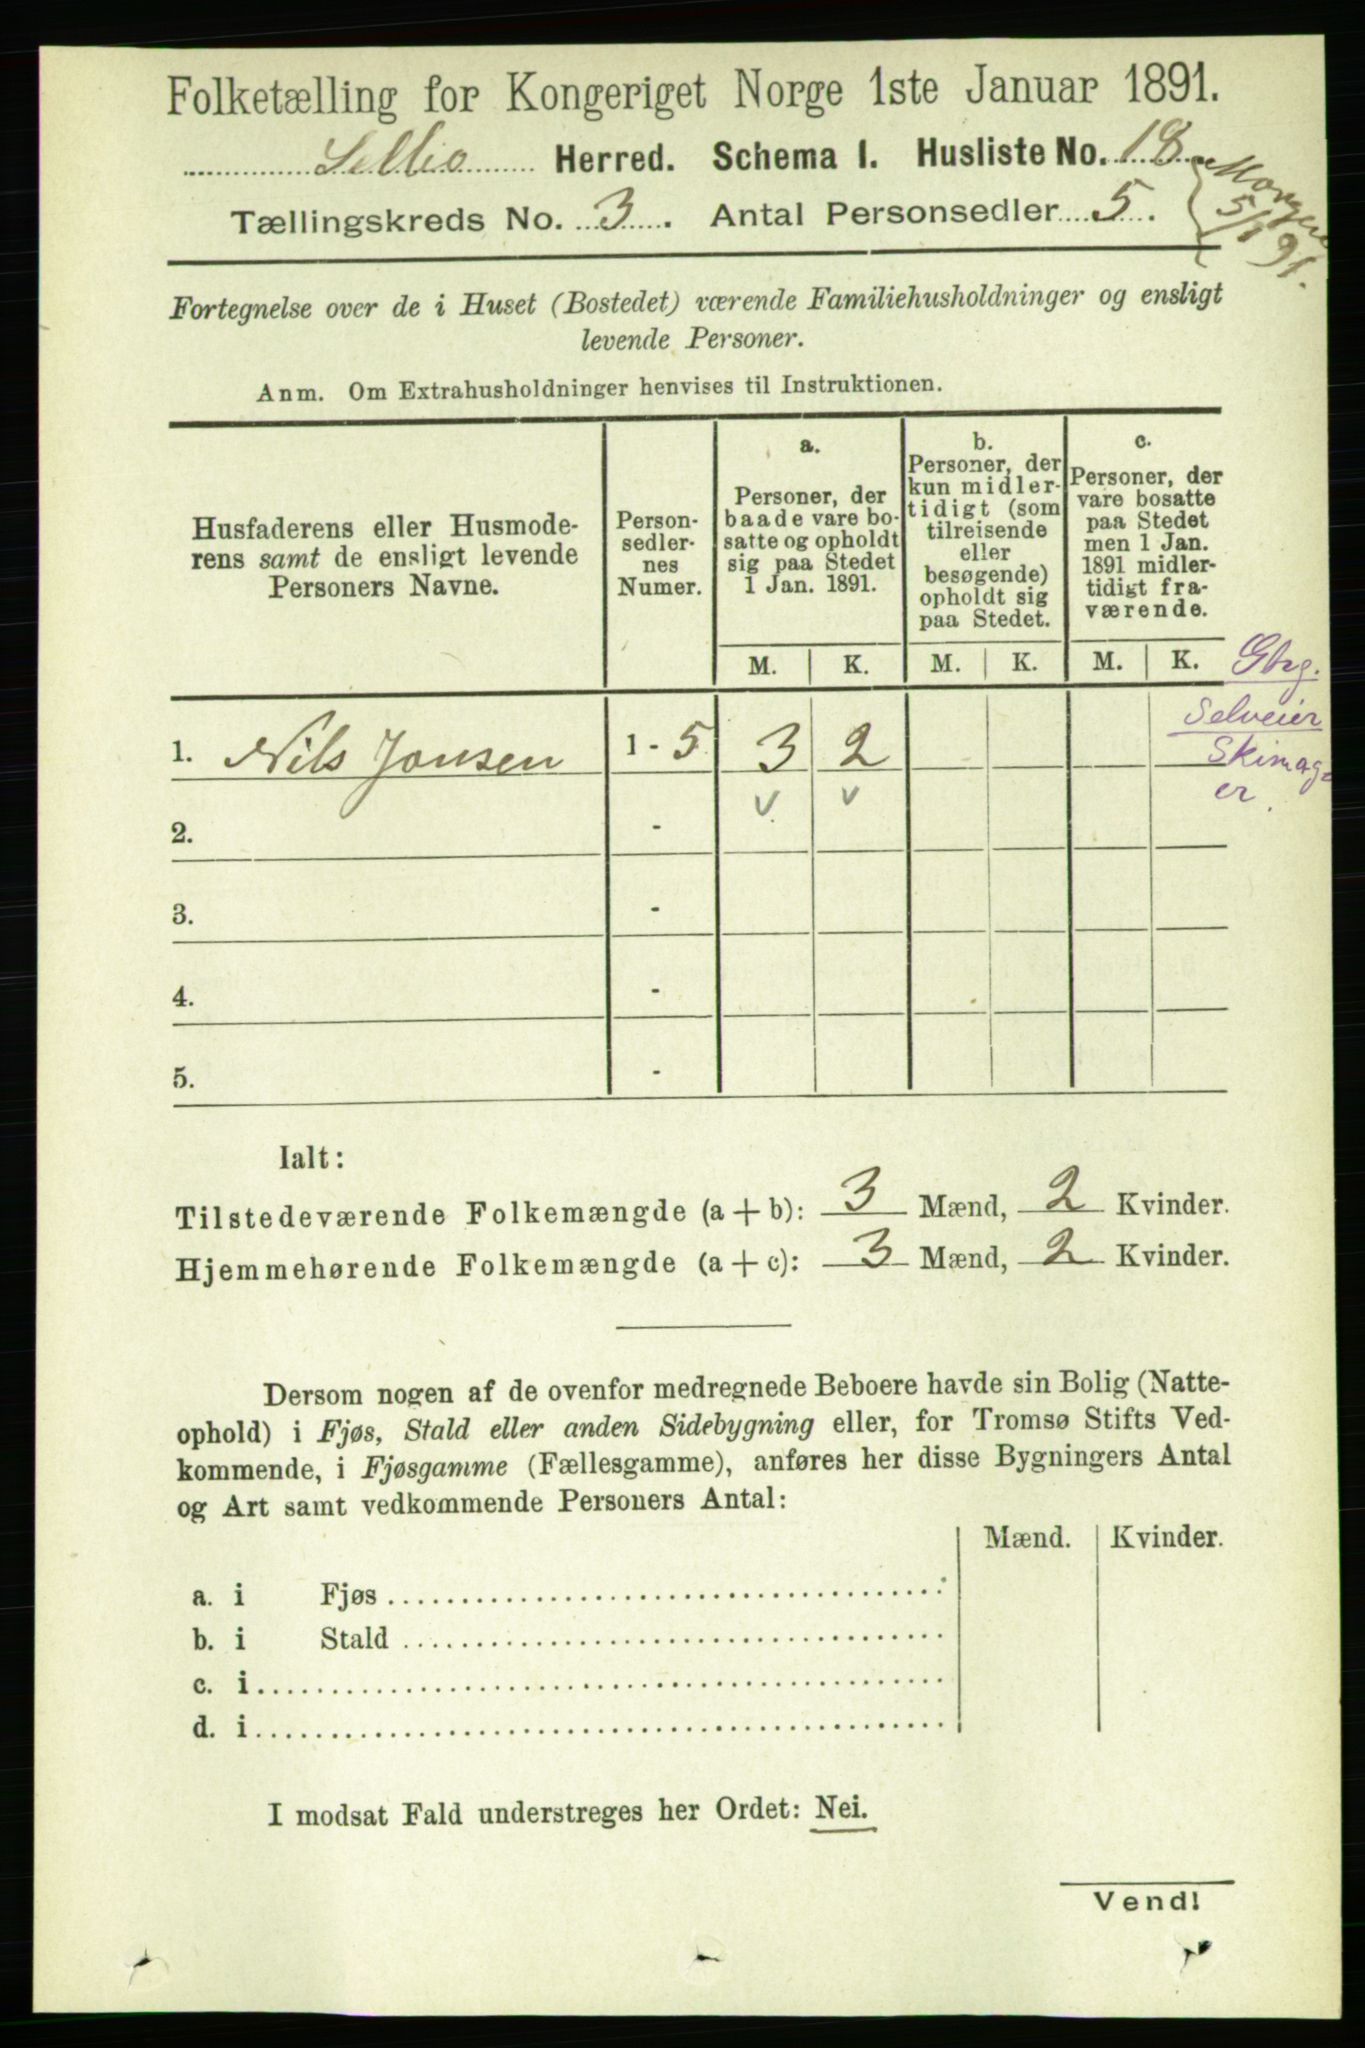 Folketælling for Kongeriget Norge 1ste Januar 1891.
Selbo Herred. Schema I. Husliste No. 18
Tællingskreds No. 3. Antal Personsedler 5.
5/1 91.
Fortegnelse over de i Huset (Bostedet) værende Familiehusholdninger og ensligt
levende Personer.
Anm. Om Extrahusholdninger henvises til Instruktionen.
Husfaderens eller Husmode-
rens samt de ensligt levende
Personers Navne.
Person-
sedler-
nes
Numer.
a.
Personer, der
baade vare bo-
satte og opholdt
sig paa Stedet
1 Jan. 1891.
b.
Personer, der
kun midler-
tidigt (som
tilreisende
eller
besøgende)
opholdt sig
paa Stedet.
c.
Personer, der
vare bosatte
paa Stedet
men 1 Jan.
1891 midler-
tidigt fra-
værende.
M. K. M. K. M. K.
Gbrg.
Selveier
Skimag-
er.
1. Nils Jonsen 1 - 5 3 2
v v
2. -
3. -
4. -
5. -
Ialt:
Tilstedeværende Folkemængde (a + b): 3 Mænd, 2 Kvinder.
Hjemmehørende Folkemængde (a + c): 3 Mænd, 2 Kvinder.
Dersom nogen af de ovenfor medregnede Beboere havde sin Bolig (Natte-
ophold) i Fjøs, Stald eller anden Sidebygning eller, for Tromsø Stifts Ved-
kommende, i Fjøsgamme (Fællesgamme), anføres her disse Bygningers Antal
og Art samt vedkommende Personers Antal:
Mænd. Kvinder.
a. i Fjøs
b. i Stald
c. i
d. i
I modsat Fald understreges her Ordet: Nei.
Vend!